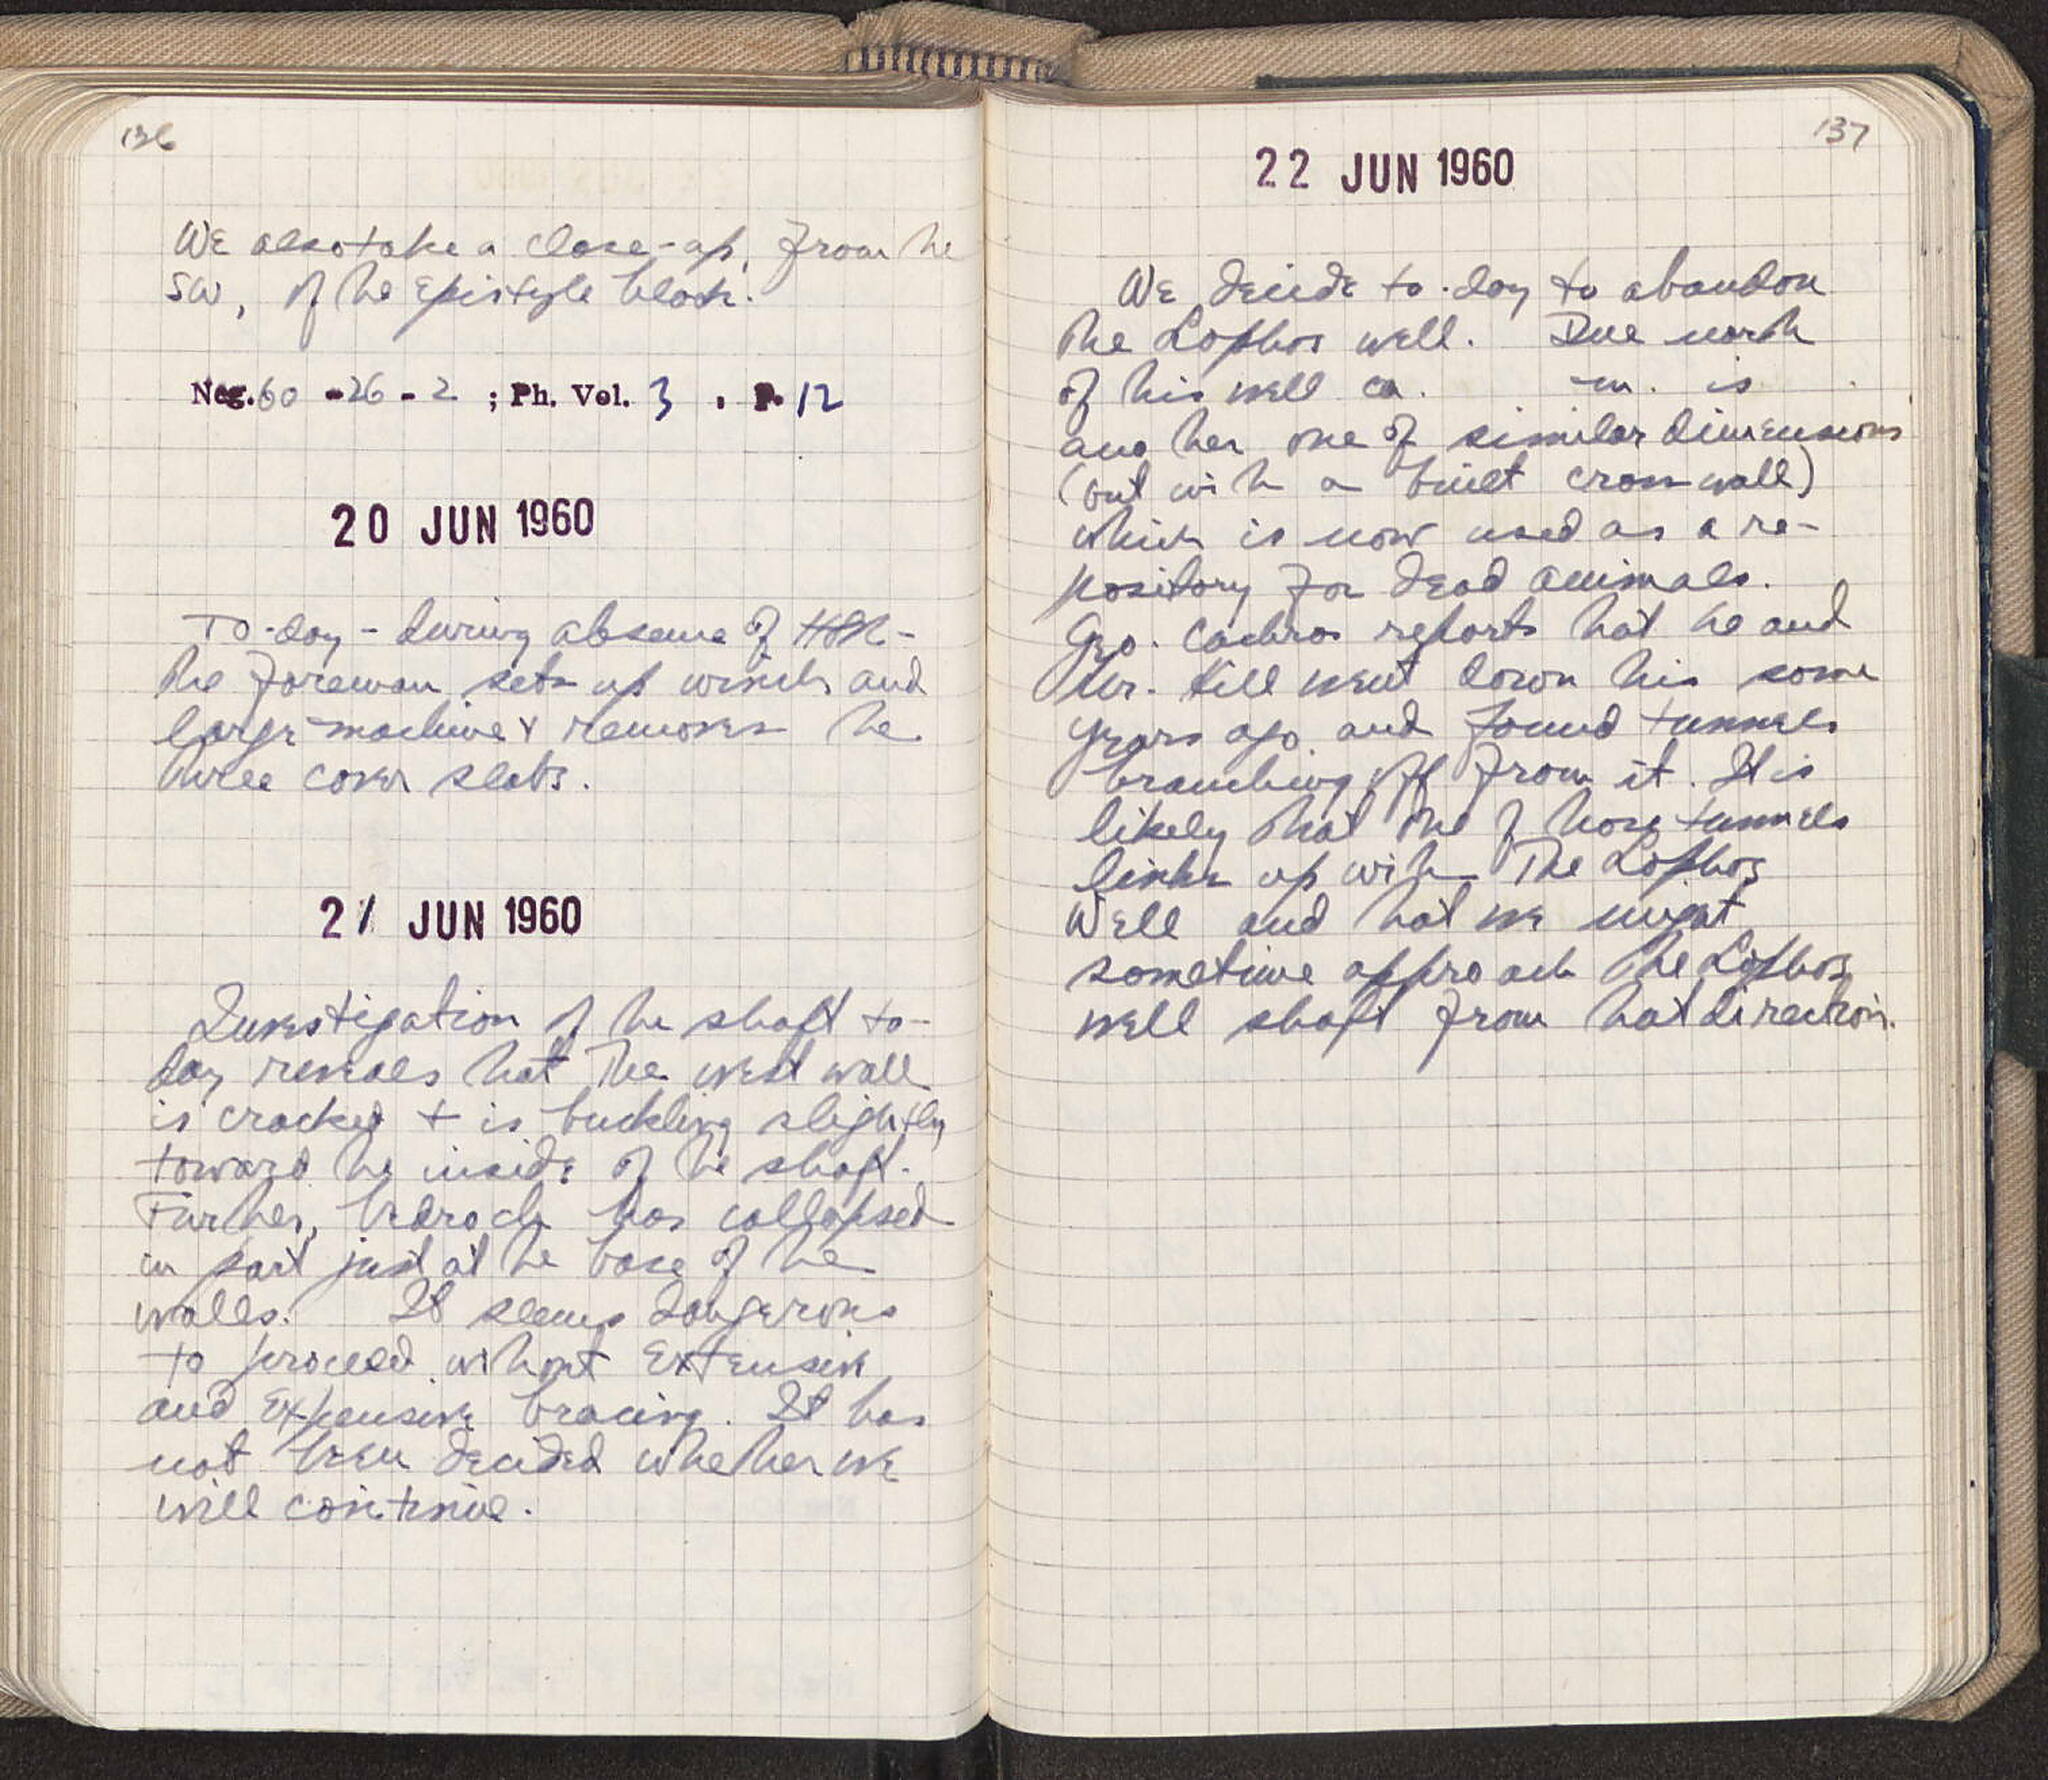 136
We also take a close-up, from the
SW, of the epistyle block.
Neg. 60 - 26 - 2 ; Ph. Vol. 3 , p. 12
20 JUN 1960
To-day - during absence of
the foreman sets up winch and
large machine & removes the
three cover slabs.
21 JUN 1960
Investigation of the shaft to-
day reveals that the west wall
is cracked + is buckling slightly
toward the inside of the shaft.
Further, bedrock has collapsed
in part just at the base of the
walls. It seems dangerous
to proceed without extensive
and expensive bracing. It has
not been decided whether we
will continue.
137
22 JUN 1960
We decide to-day to abandon
the Lophos well. Due north
of this well ca. m. is
another one of similar dimensions
(but with a built cross wall)
which is now used as a re-
pository for dead animals.
Geo. Cachros reports that he and
Mr. Hill went down this some
years ago and found tunnels
branching off from it. It is
likely that one of those tunnels
links up with the Lophos
Well and that we might
sometime approach the Lophos
well shaft from that direction.